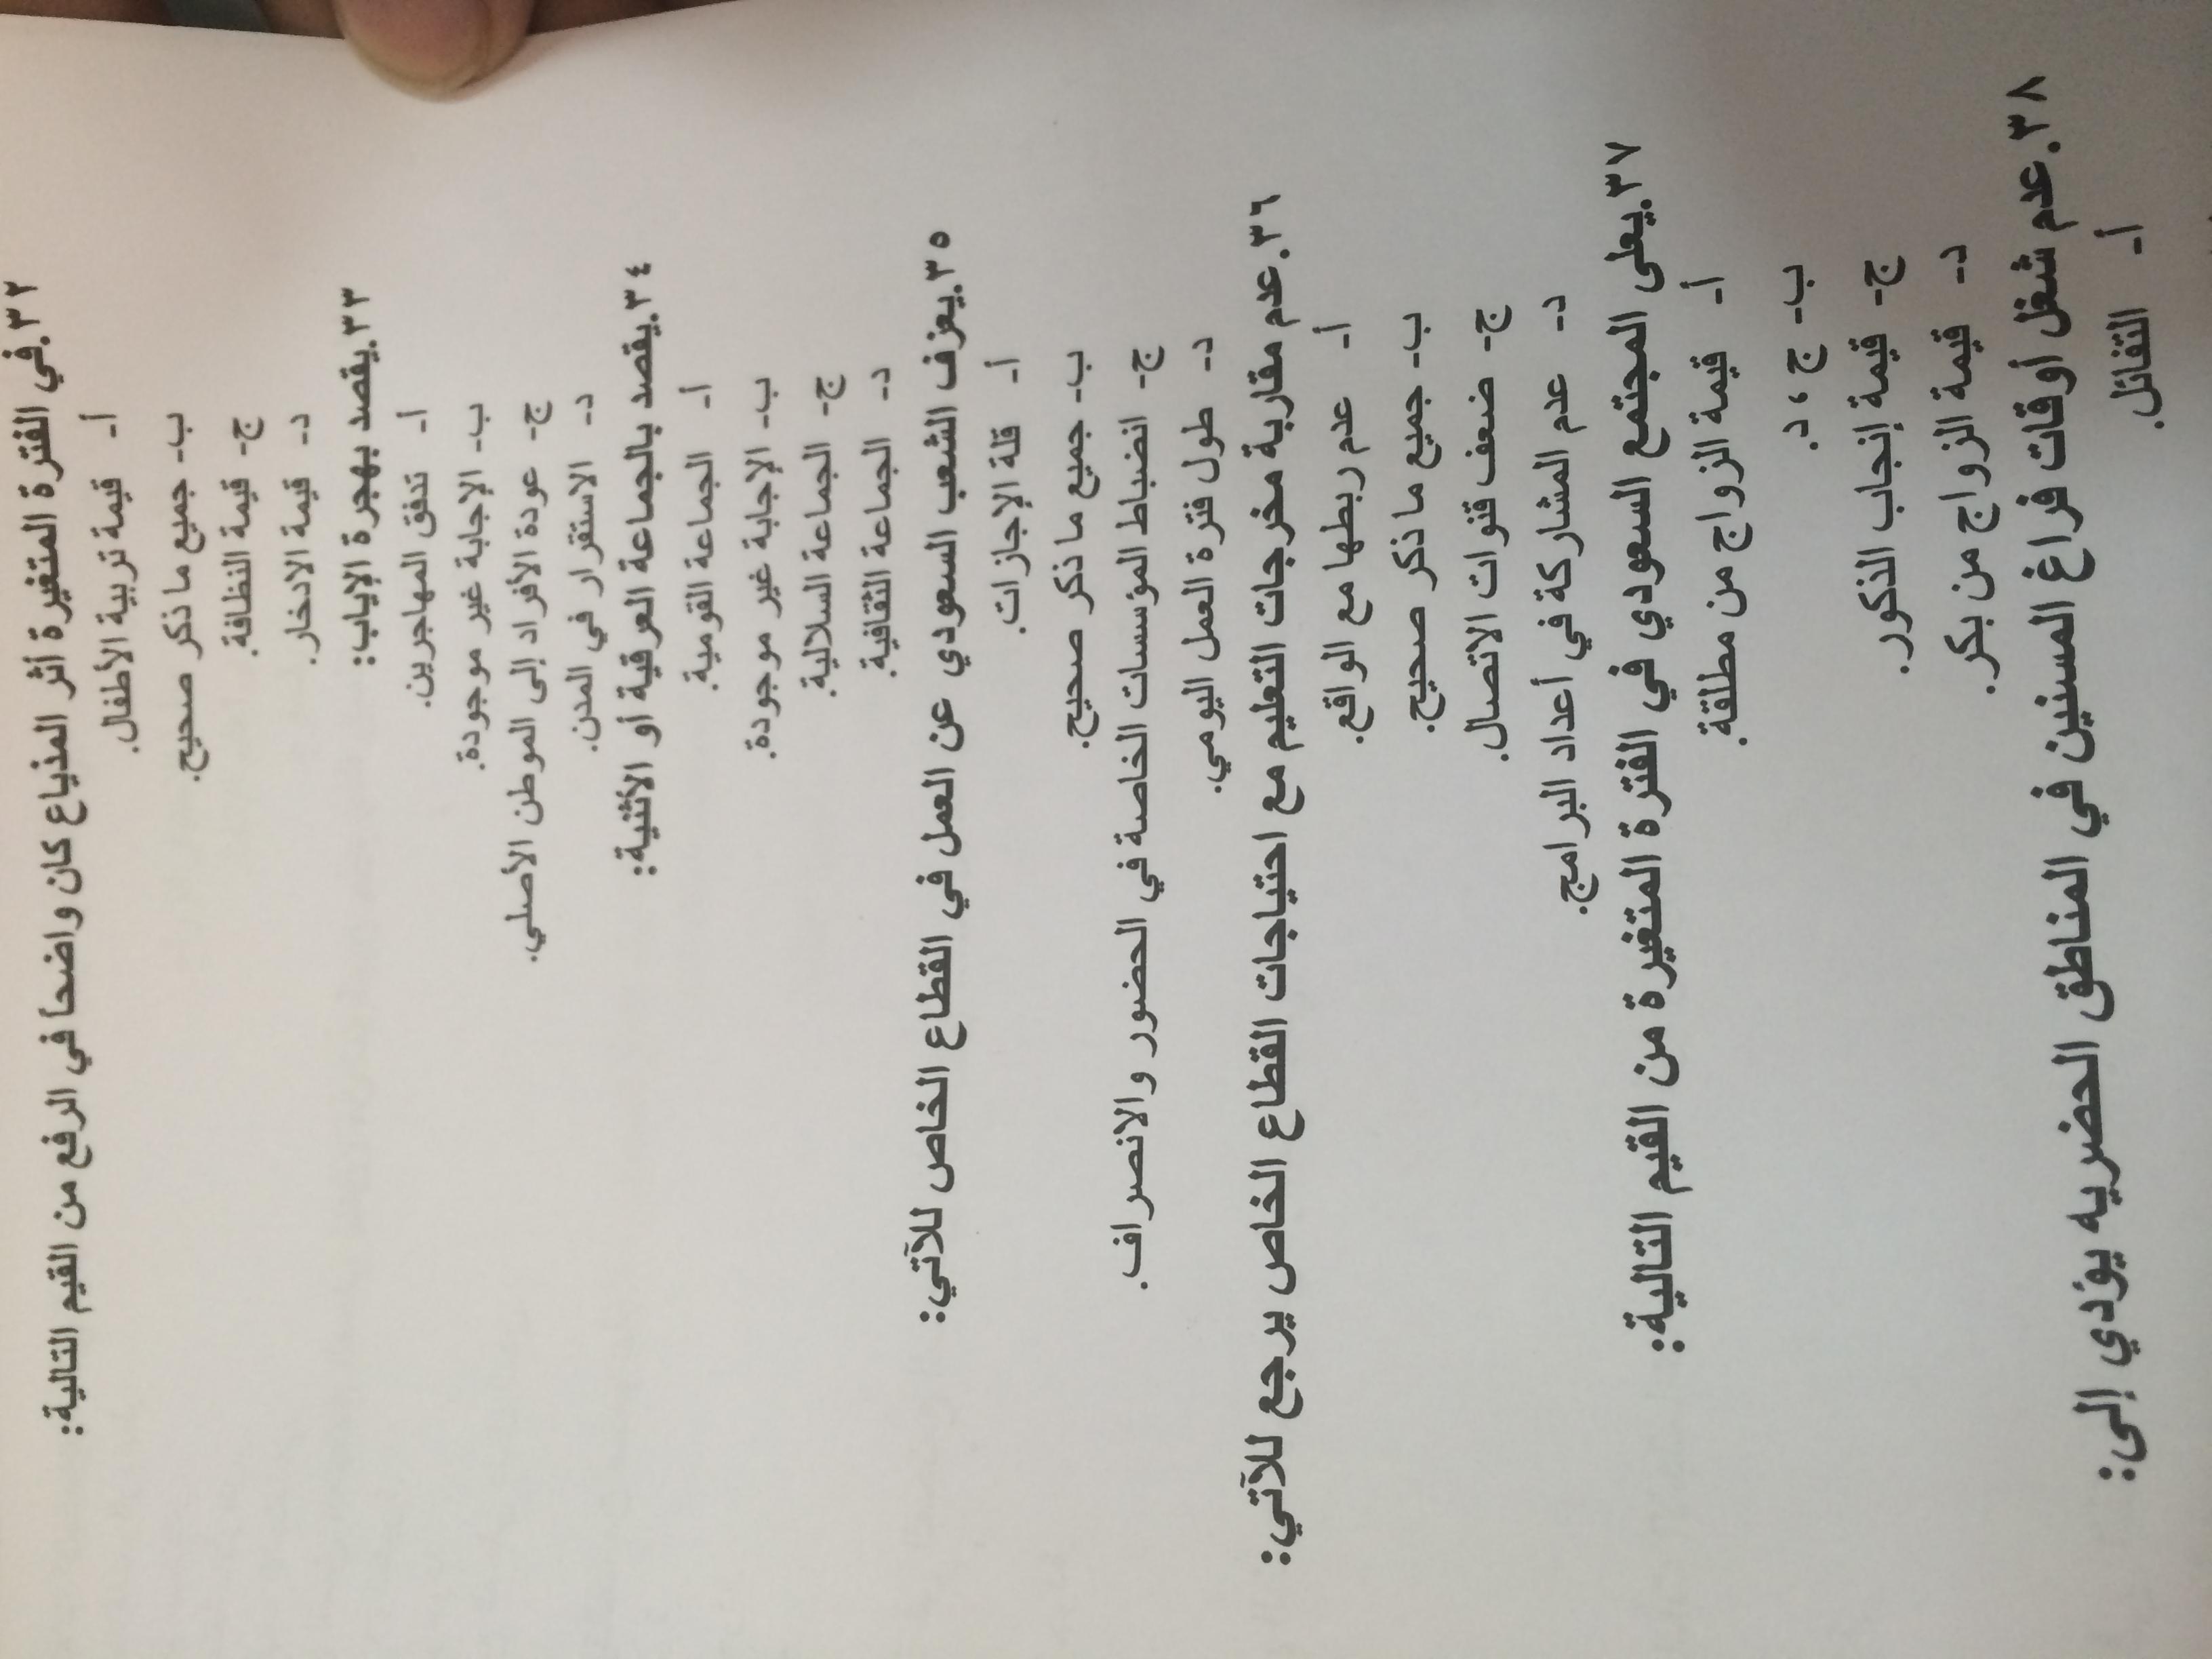 ٣٢.في الفترة المتغيرة أثر المذياع كان واضحاً في الرفع من القيم التالية:
أ- قيمة تربية الأطفال.
ب- جميع ما ذكر صحيح.
ج- قيمة النظافة.
د- قيمة الادخار.
٣٣.يقصد بهجرة الإياب:
أ- تدفق المهاجرين.
ب- الإجابة غير موجودة.
ج- عودة الأفراد إلى الموطن الأصلي.
د- الاستقرار في المدن.
٣٤.يقصد بالجماعة العرقية أو الأثنية:
أ- الجماعة القومية.
ب- الإجابة غير موجودة.
ج- الجماعة السلالية.
د- الجماعة الثقافية.
٣٥.يعزف الشعب السعودي عن العمل في القطاع الخاص للآتي:
أ- قلة الإجازات.
ب- جميع ما ذكر صحيح.
ج- انضباط المؤسسات الخاصة في الحضور والانصراف.
د- طول فترة العمل اليومي.
٣٦.عدم مقاربة مخرجات التعليم مع احتياجات القطاع الخاص يرجع للآتي:
أ- عدم ربطها مع الواقع.
ب- جميع ما ذكر صحيح.
ج- ضعف قنوات الاتصال.
د- عدم المشاركة في أعداد البرامج.
٣٧.يعلى المجتمع السعودي في الفترة المتغيرة من القيم التالية:
أ- قيمة الزواج من مطلقة.
ب- ج ، د.
ج- قيمة إنجاب الذكور.
د- قيمة الزواج من بكر.
٣٨.عدم شغل أوقات فراغ المسنين في المناطق الحضريه يؤدي إلى:
أ- التفائل.